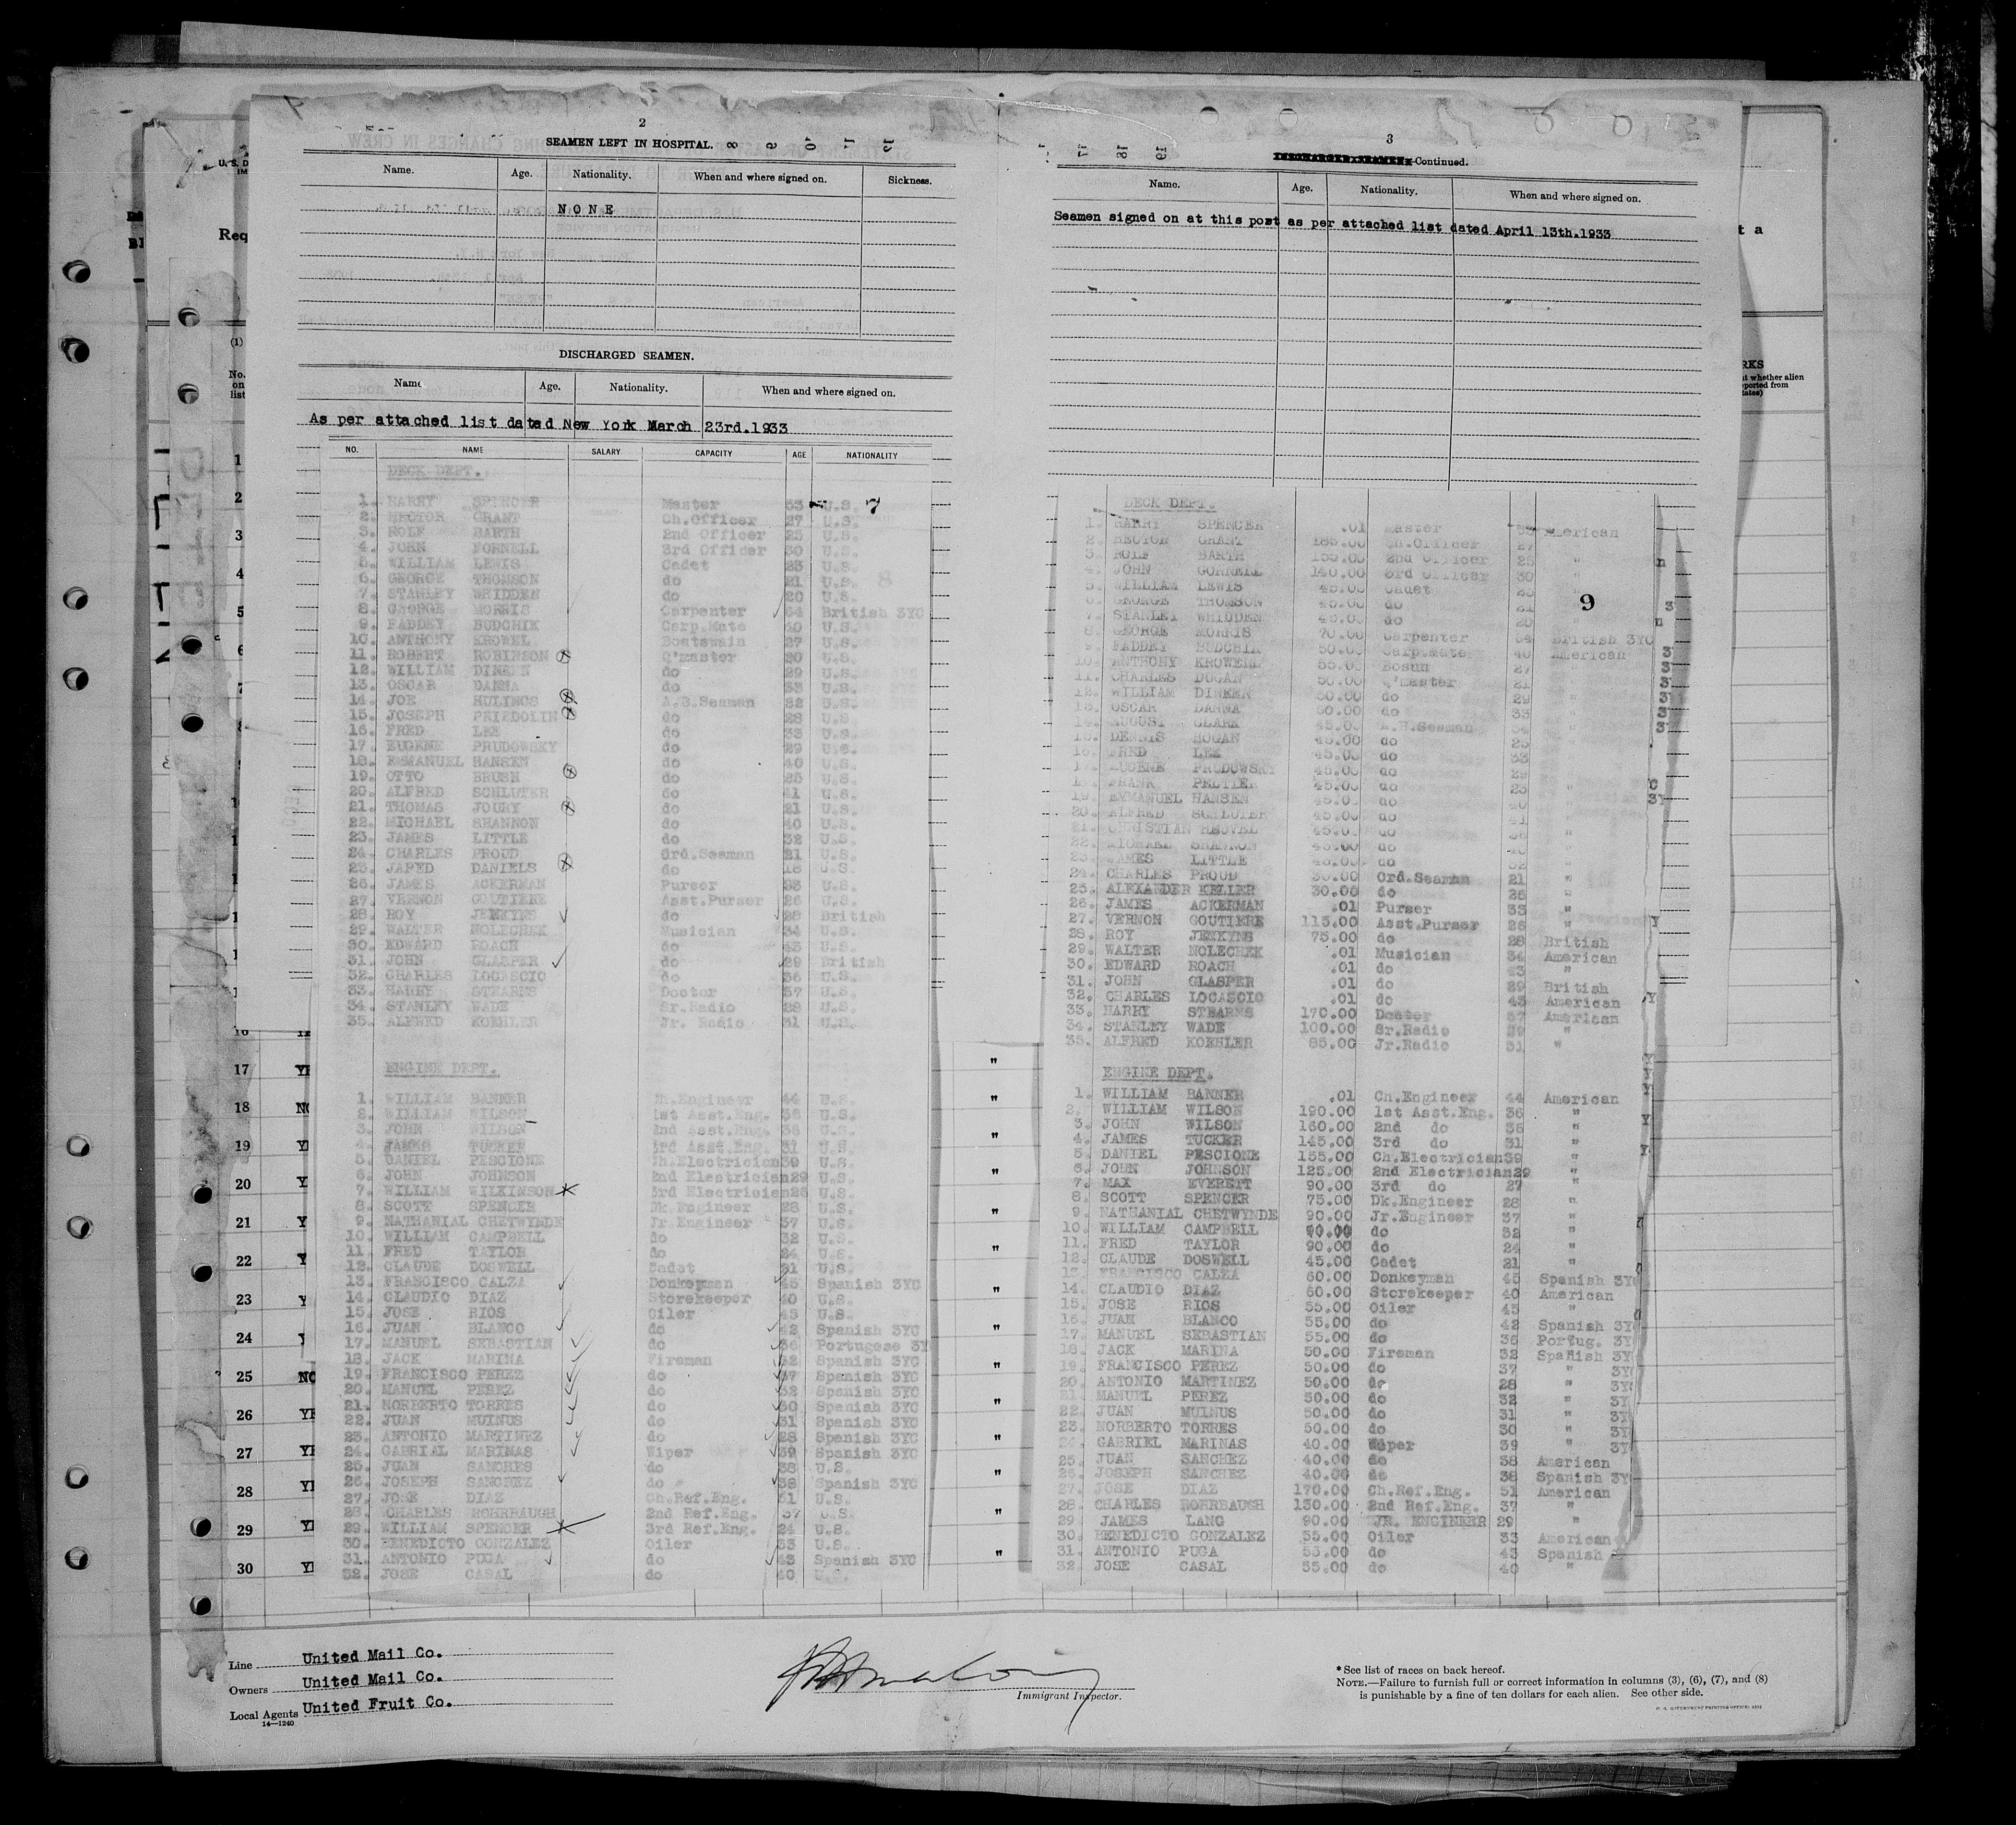 2
SEAMEN LEFT IN HOSPITAL.
Name. Age. Nationality. When and where signed on. Sickness.
NONE
DISCHARGED SEAMEN.
Name Age. Nationality. When and where signed on.
As per attached list dated New York March 23rd.1933
NO. NAME SALARY CAPACITY AGE NATIONALITY
DECK DEPT.
1. HARRY SPENCER Master 53 U.S. 7
2. HECTOR GRANT Ch.Officer 27 U.S.
3. ROLF BARTH 2nd Officer 25 U.S.
4. JOHN 3rd Officer 30 U.S.
5. WILLIAM LEWIS Cadet 23 U.S.
6. GEORGE THOMSON do 21 U.S. 8
7. STANLEY WHIDDEN do 20 U.S.
8. GEORGE MORRIS Carpenter 54 British 3YC
9. FADDEY BUDCHIK Carp.Mate 40 U.S.
10. ANTHONY KROWEL Boatswain 27 U.S.
11. ROBERT ROBINSON Q'master 30 U.S.
12. WILLIAM DINEEN do 29 U.S.
13. OSCAR DANNA do 33 U.S.
14. JOE HULINGS A.B.Seaman 22 U.S.
15. JOSEPH FRIEDOLIN do 28 U.S.
16. FRED LEE do 33 U.S.
17. EUGENE PRUDOWSKY do 29 U.S.
18. EMMANUEL HANSEN do 40 U.S.
19. OTTO BRUSH do 25 U.S.
20. ALFRED SCHLUTER do 41 U.S.
21. THOMAS JOURY do 21 U.S.
22. MICHAEL SHANNON do 40 U.S.
23. JAMES LITTLE do 32 U.S.
24. CHARLES PROUD Ord.Seaman 21 U.S.
25. JAPED DANIELS do 18 U.S.
26. JAMES ACKERMAN Purser 33 U.S.
27. VERNON GOUTIERE Asst.Purser 26 U.S.
28. ROY JENKYNS do 28 British
29. WALTER NOLECHEK Musician 34 U.S.
30. EDWARD ROACH do 43 U.S.
31. JOHN GLASPER do 29 British
32. CHARLES LOCASCIO do 36 U.S.
33. HARRY STEARNS Doctor 37 U.S.
34. STANLEY WADE Sr.Radio 28 U.S.
35. ALFRED KOEHLER Jr. Radio 31 U.S.
ENGINE DEPT.
1. WILLIAM BANNER Ch.Engineer 44 U.S.
2. WILLIAM WILSON 1st Asst.Eng. 36 U.S.
3. JOHN WILSON 2nd Asst.Eng. 36 U.S.
4. JAMES TUCKER 3rd Asst Eng. 31 U.S.
5. DANIEL PESCIONE Ch.Electrician 39 U.S.
6. JOHN JOHNSON 2nd Electrician 29 U.S.
7. WILLIAM WILKINSON 3rd Electrician 26 U.S.
8. SCOTT SPENCER Dk.Engineer 28 U.S.
9. NATHANIAL CHETWYNDE Jr.Engineer 37 U.S.
10. WILLIAM CAMPBELL do 32 U.S.
11. FRED TAYLOR do 24 U.S.
12. CLAUDE DOSWELL Cadet 21 U.S.
13. FRANCISCO CALZA Donkeyman 45 Spanish 3YC
14. CLAUDIO DIAZ Storekeeper 40 U.S.
15. JOSE RIOS Oiler 43 U.S.
16. JUAN BLANCO do 42 Spanish 3YC
17. MANUEL SEBASTIAN do 36 Portugese 3Y
18. JACK MARINA Fireman 32 Spanish 3YC
19. FRANCISCO PEREZ do 37 Spanish 3YC
20. MANUEL PEREZ do 32 Spanish 3YC
21. NORBERTO TORRES do 30 Spanish 3YC
22. JUAN MUINUS do 31 Spanish 3YC
23. ANTONIO MARTINEZ do 28 Spanish 3YC
24. GABRIAL MARINAS Wiper 39 Spanish 3YC
25. JUAN SANCHES do 38 U.S.
26. JOSEPH SANCHEZ do 38 Spanish 3YC
27. JOSE DIAZ Ch.Ref.Eng. 51 U.S.
28. CHARLES ROHRBAUGH 2nd Ref.Eng. 37 U.S.
29. WILLIAM SPENCER 3rd Ref.Eng. 24 U.S.
30. BENEDICTO GONZALEZ Oiler 33 U.S.
31. ANTONIO PUGA do 43 Spanish 3YC
32. JOSE CASAL do 40 U.S.
3
Continued.
Name. Age. Nationality. When and where signed on.
Seamen signed on at this post as per attached list dated April 13th.1933
DECK DEPT.
1. HARRY SPENCER .01 Master 53 American
2. HECTOR GRANT 185.00 Ch.Officer 27 "
3. ROLF BARTH 155.00 2nd Officer 25 "
4. JOHN GORRELL 140.00 3rd Officer 30 "
5. WILLIAM LEWIS 45.00 Cadet 23
6. GEORGE THOMSON 45.00 do 21 9
7. STANLEY WHIDDEN 45.00 do 20
8. GEORGE MORRIS 70.00 Carpenter 54 British 3YC
9. FADDEY BUDCHIK 50.00 Carp.Mate 40 American
10. ANTHONY KROWEL 55.00 Bosun 27 "
11. CHARLES DUGAN 50.00 Q'master 21 "
12. WILLIAM DINEEN 50.00 do 29 "
13. OSCAR DANNA 50.00 do 33 "
14. AUGUST CLARK 45.00 A.B.Seaman "
15. DENNIS HOGAN 45.00 do 25 "
16. FRED LEE 45.00 do 33 "
17. EUGENE PRUDOWSKY 45.00 do 29 "
18. FRANK PELTIER 45.00 do 23 "
19. EMMANUEL HANSEN 45.00 do 40 "
20. ALFRED SCHLUTER 45.00 do 41 "
21. CHRISTIAN HEUVEL 45.00 do 36 "
22. MICHAEL SHANNON 45.00 do 40 "
23. JAMES LITTLE 45.00 do 32 "
24. CHARLES PROUD 30.00 Ord.Seaman 21 "
25. ALEXANDER KELLER 30.00 do 26 "
26. JAMES ACKERMAN .01 Purser 33 "
27. VERNON GOUTIERE 115.00 Asst.Purser 26 "
28. ROY JENKYNS 75.00 do 28 British
29. WALTER NOLECHEK .01 Musician 34 American
30. EDWARD ROACH .01 do 43 "
31. JOHN GLASPER .01 do 29 British
32. CHARLES LOCASCIO .01 do 43 American
33. HARRY STEARNS 170.00 Doctor 37 American
34. STANLEY WADE 100.00 Sr.Radio 29 "
35. ALFRED KOEHLER 85.00 Jr.Radio 31 "
ENGINE DEPT.
1. WILLIAM BANNER .01 Ch.Engineer 44 American
2. WILLIAM WILSON 190.00 1st Asst.Eng. 36 "
3. JOHN WILSON 160.00 2nd do 36 "
4. JAMES TUCKER 145.00 3rd do 31 "
5. DANIEL PESCIONE 155.00 Ch.Electrician 39 "
6. JOHN JOHNSON 125.00 2nd Electrician 29 "
7. MAX EVERETT 90.00 3rd do 27 "
8. SCOTT SPENCER 75.00 Dk.Engineer 28 "
9. NATHANIAL CHETWYNDE 90.00 Jr.Engineer 37 "
10. WILLIAM CAMPBELL 90.00 do 32 "
11. FRED TAYLOR 90.00 do 24 "
12. CLAUDE DOSWELL 45.00 Cadet 21 "
13. FRANCISCO CALZA 60.00 Donkeyman 45 Spanish 3Y
14. CLAUDIO DIAZ 60.00 Storekeeper 40 American
15. JOSE RIOS 55.00 Oiler 43 "
16. JUAN BLANCO 55.00 do 42 Spanish 3Y
17. MANUEL SEBASTIAN 55.00 do 36 Portug. 3Y
18. JACK MARINA 50.00 Fireman 32 Spanish 3Y
19. FRANCISCO PEREZ 50.00 do 37 " 3Y
20. ANTONIO MARTINEZ 50.00 do 28 " 3Y
21. MANUEL PEREZ 50.00 do 32 " 3Y
22. JUAN MUINUS 50.00 do 31 " 3Y
23. NORBERTO TORRES 50.00 do 30 " 3Y
24. GABRIEL MARINAS 40.00 Wiper 39 " 3Y
25. JUAN SANCHEZ 40.00 do 38 American
26. JOSEPH SANCHEZ 40.00 do 38 Spanish 3Y
27. JOSE DIAZ 170.00 Ch.Ref.Eng. 51 American
28. CHARLES ROHRBAUGH 130.00 2nd Ref.Eng. 37 "
29 JAMES LANG 90.00 JR. ENGINEER 29 "
30. BENEDICTO GONZALEZ 55.00 Oiler 33 American
31. ANTONIO PUGA 55.00 do 43 Spanish
32. JOSE CASAL 55.00 do 40 "
Line United Mail Co.
Owners United Mail Co.
Local Agents United Fruit Co.
14—1240
Immigrant Inspector.
*See list of races on back hereof.
NOTE.—Failure to furnish full or correct information in columns (3), (6), (7), and (8)
is punishable by a fine of ten dollars for each alien. See other side.
U. S. GOVERNMENT PRINTING OFFICE: 1932